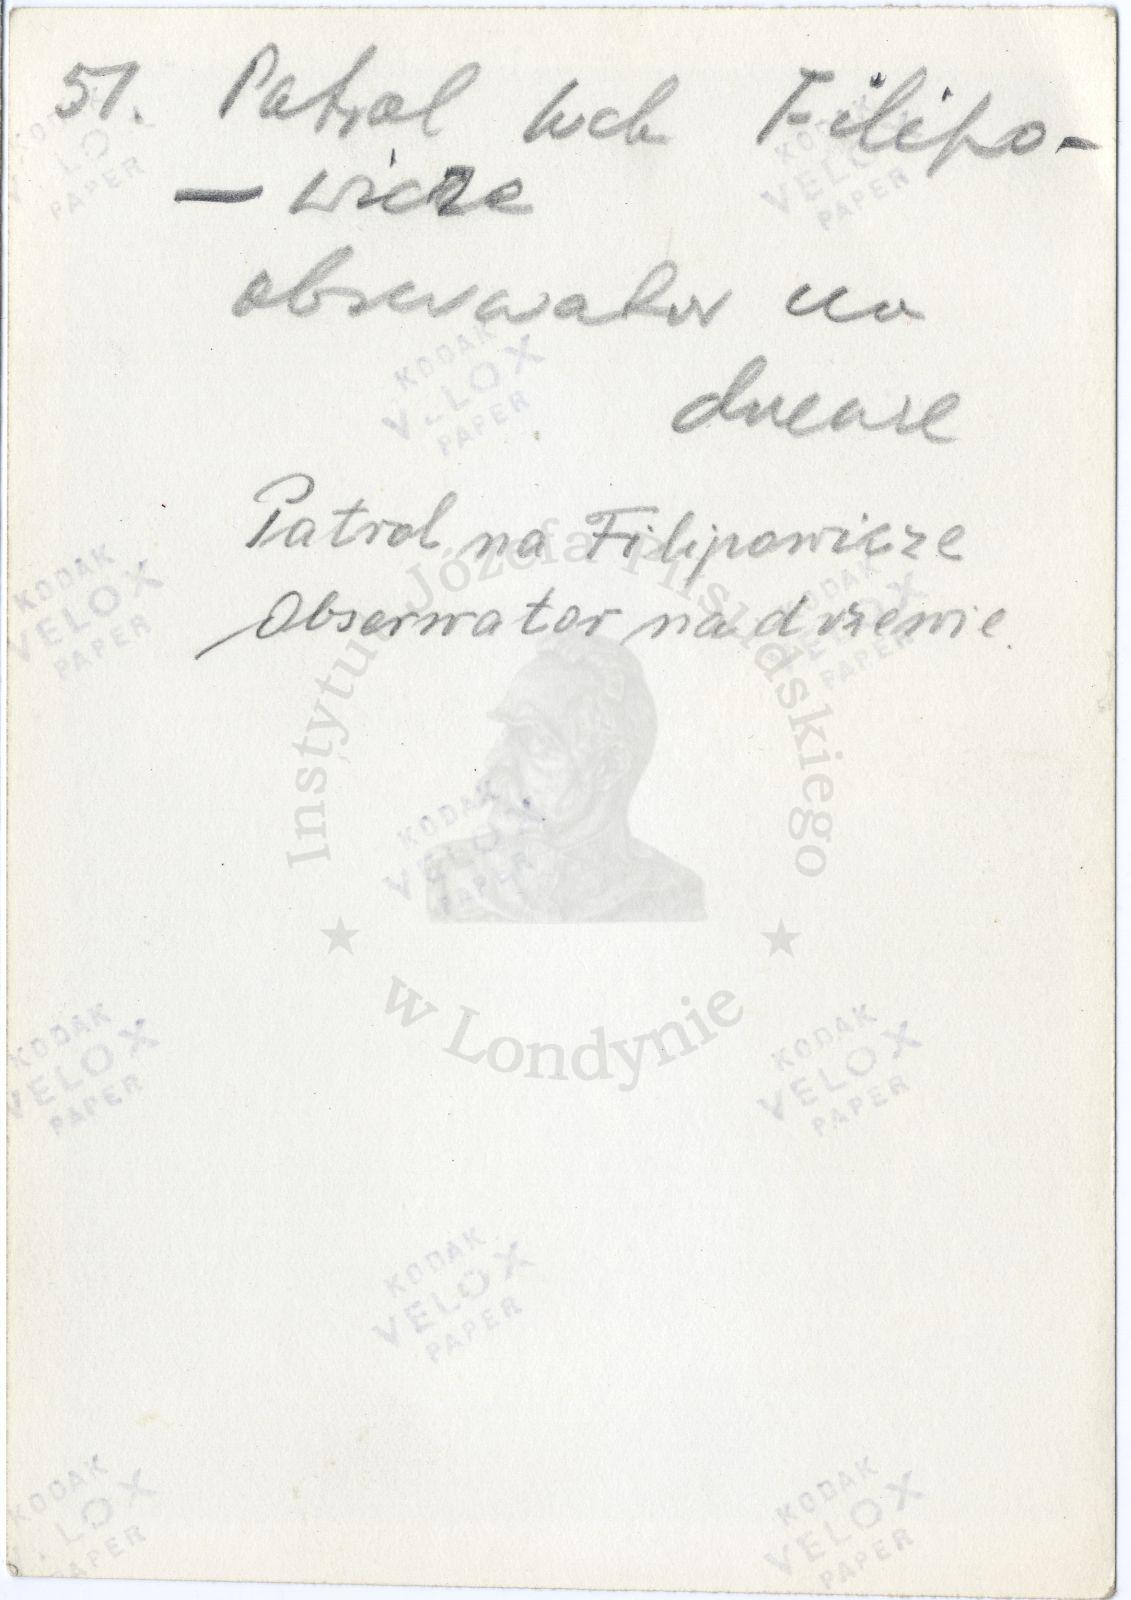 51. Patrol Filipo-
- wicze
obserwator na
Patrol na Filipowicze
Obserwator na drzewie.
Instytut Józefa Piłsudskiego
w Londynie
KODAK
VELOX
PAPER
KODAK
VELOX
PAPER
KODAK
VELOX
PAPER
KODAK
VELOX
PAPER
KODAK
VELOX
PAPER
KODAK
VELOX
PAPER
KODAK
VELOX
PAPER
KODAK
VELOX
PAPER
KODAK
VELOX
PAPER
KODAK
VELOX
PAPER
KODAK
VELOX
PAPER